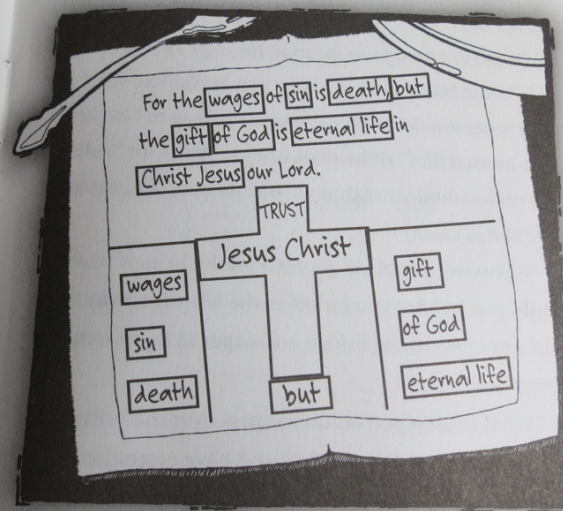 For the wages of sin is death, but
the gift of God is eternal life in
Christ Jesus our Lord.
TRUST
Jesus Christ
wages
sin
death
but
gift
of God
eternal life